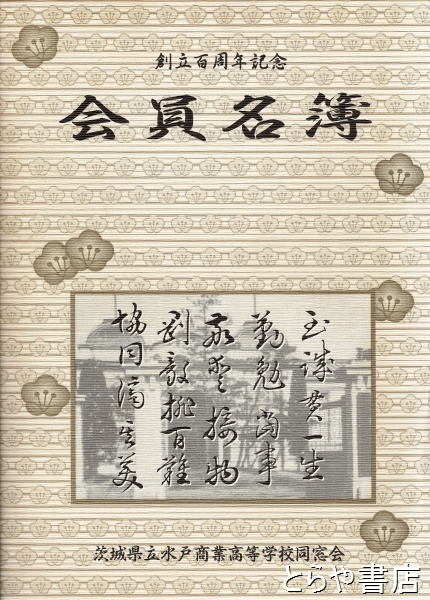 創立百周年記念
会員名簿
至誠貫一生
勤勉当事
敬愛接物
剛毅排百難
協同済其美
茨城県立水戸商業高等学校同窓会
とらや書店